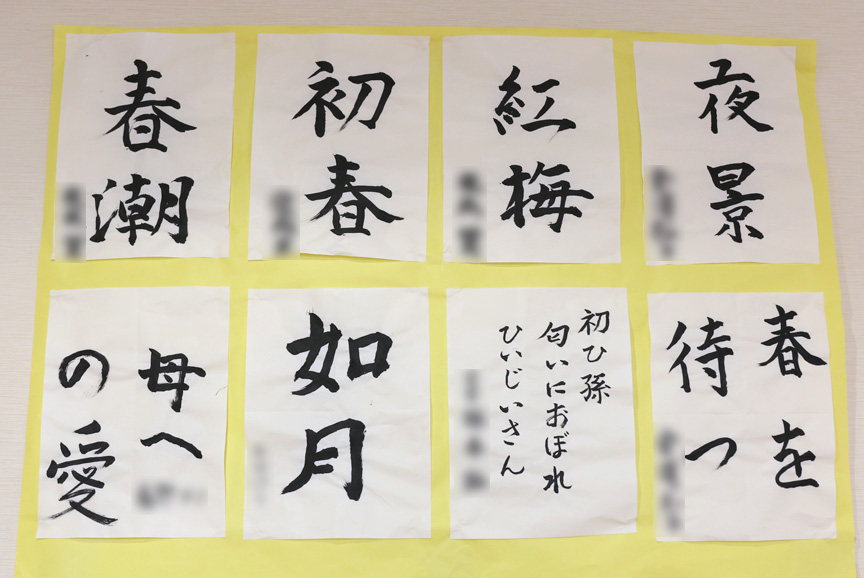 夜景
紅梅
初春
春潮
春を
待つ
初ひ孫
匂いにおぼれ
ひいじいさん
如月
母へ
の愛